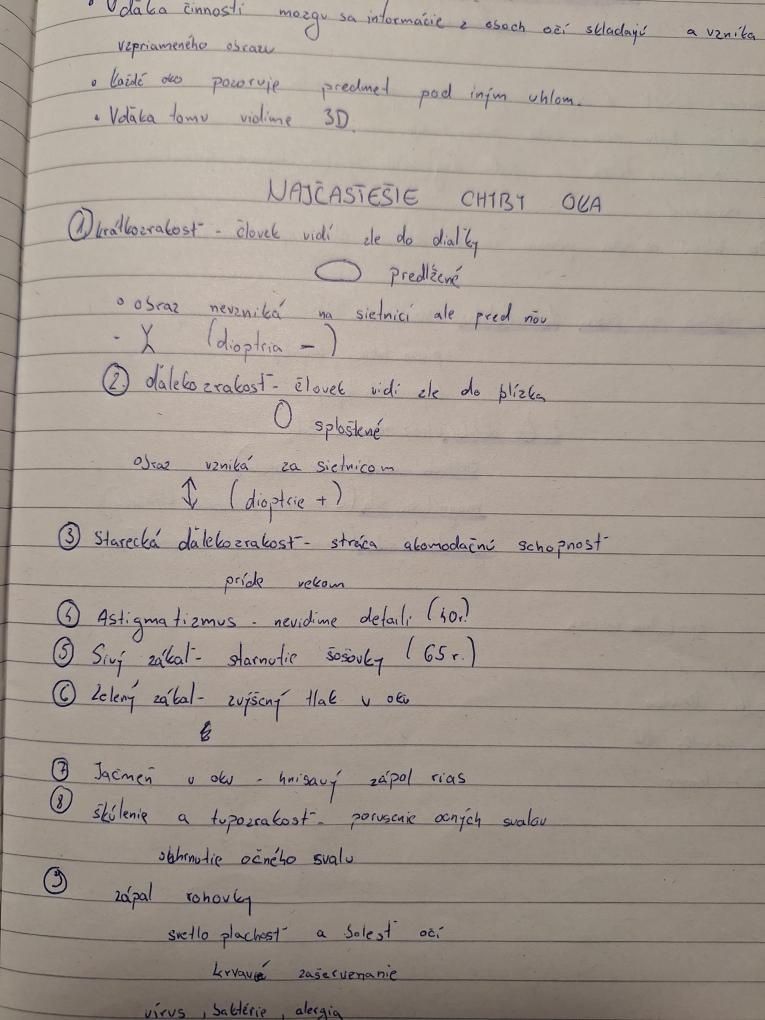 • Vďaka činnosti mozgu sa informácie z oboch očí skladajú a vzniká
vzpriameného obrazu
• Každé oko pozoruje predmet pod iným uhlom.
• Vďaka tomu vidíme 3D.
NAJČASTEŠIE CHYBY OKA
① krátkozrakosť - človek vidí zle do diaľky
predlžené
• obraz nevzniká na sietnici ale pred ňou
- (dioptria -)
② ďalekozrakosť - človek vidí zle do blízka
sploštené
obraz vzniká za sietnicom
↕ (dioptrie +)
③ Starecká ďalekozrakosť - stráca akomodačnú schopnosť
príde vekom
④ Astigmatizmus - nevidíme detaili (40r.)
⑤ Sivý zákal - starnutie šošovky (65 r.)
⑥ Zelený zákal - zvýšený tlak v oku
⑦ Jačmeň v oku - hnisavý zápal rias
⑧ škúlenie a tupozrakosť - porusenie očných svalov
očného svalu
⑨ zápal rohovky
svetlo plachosť a bolesť očí
krvavé začervenanie
vírus, baktérie, alergia